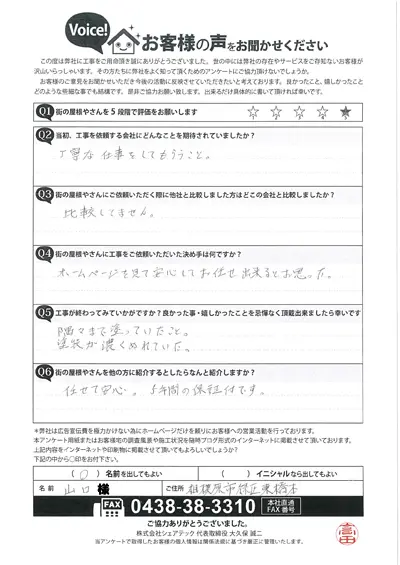 Voice! お客様の声をお聞かせください
この度は弊社に工事をご用命頂き誠にありがとうございました。世の中には弊社の存在やサービスをご存知ないお客様が
沢山いらっしゃいます。その方たちに弊社をよく知って頂くためのアンケートにご協力頂けないでしょうか。
お客様のご意見をお聞かせいただき今後の活動に反映させていただきたいと考えております。良かったこと、嬉しかったこと
どのような些細な事でも結構です。是非ご協力お願い致します。出来るだけ具体的に書いて頂ければ幸いです。
Q1 街の屋根やさんを5段階で評価をお願いします ☆ ☆ ☆ ☆ ★
Q2 当初、工事を依頼する会社にどんなことを期待されていましたか?
丁寧な仕事をしてもらうこと。
Q3 街の屋根やさんにご依頼いただく際に他社と比較しました方はどこの会社と比較しましたか?
比較してません。
Q4 街の屋根やさんに工事をご依頼いただいた決め手は何ですか?
ホームページを見て安心してお任せ出来るとお思った。
Q5 工事が終わってみていかがですか?良かった事・嬉しかったことを忌憚なく頂戴出来ましたら幸いです
隅々まで塗っていたこと。
塗装が濃くぬれていた。
Q6 街の屋根やさんを他の方に紹介するとしたらなんと紹介しますか?
任せて安心。5年間の保証付です。
*弊社は広告宣伝費を極力かけない為にホームページだけを頼りにお客様への営業活動を行っております。
本アンケート用紙またはお客様宅の調査風景や施工状況を随時ブログ形式のインターネットに掲載させて頂いております。
上記内容をインターネットや印刷物に掲載させて頂いてもよろしいでしょうか?
下記の中から〇印をお付下さい。
( 〇 ) 名前を出してもよい ( ) イニシャルなら出してもよい
名前 山口 様 ご住所 相模原市緑区東橋本
FAX 0438-38-3310 本社直通 FAX 番号
ご協力ありがとうございました。
株式会社シェアテック 代表取締役 大久保 誠二
当アンケートで取得したお客様の個人情報は関係法規に基づき厳正に管理いたします。